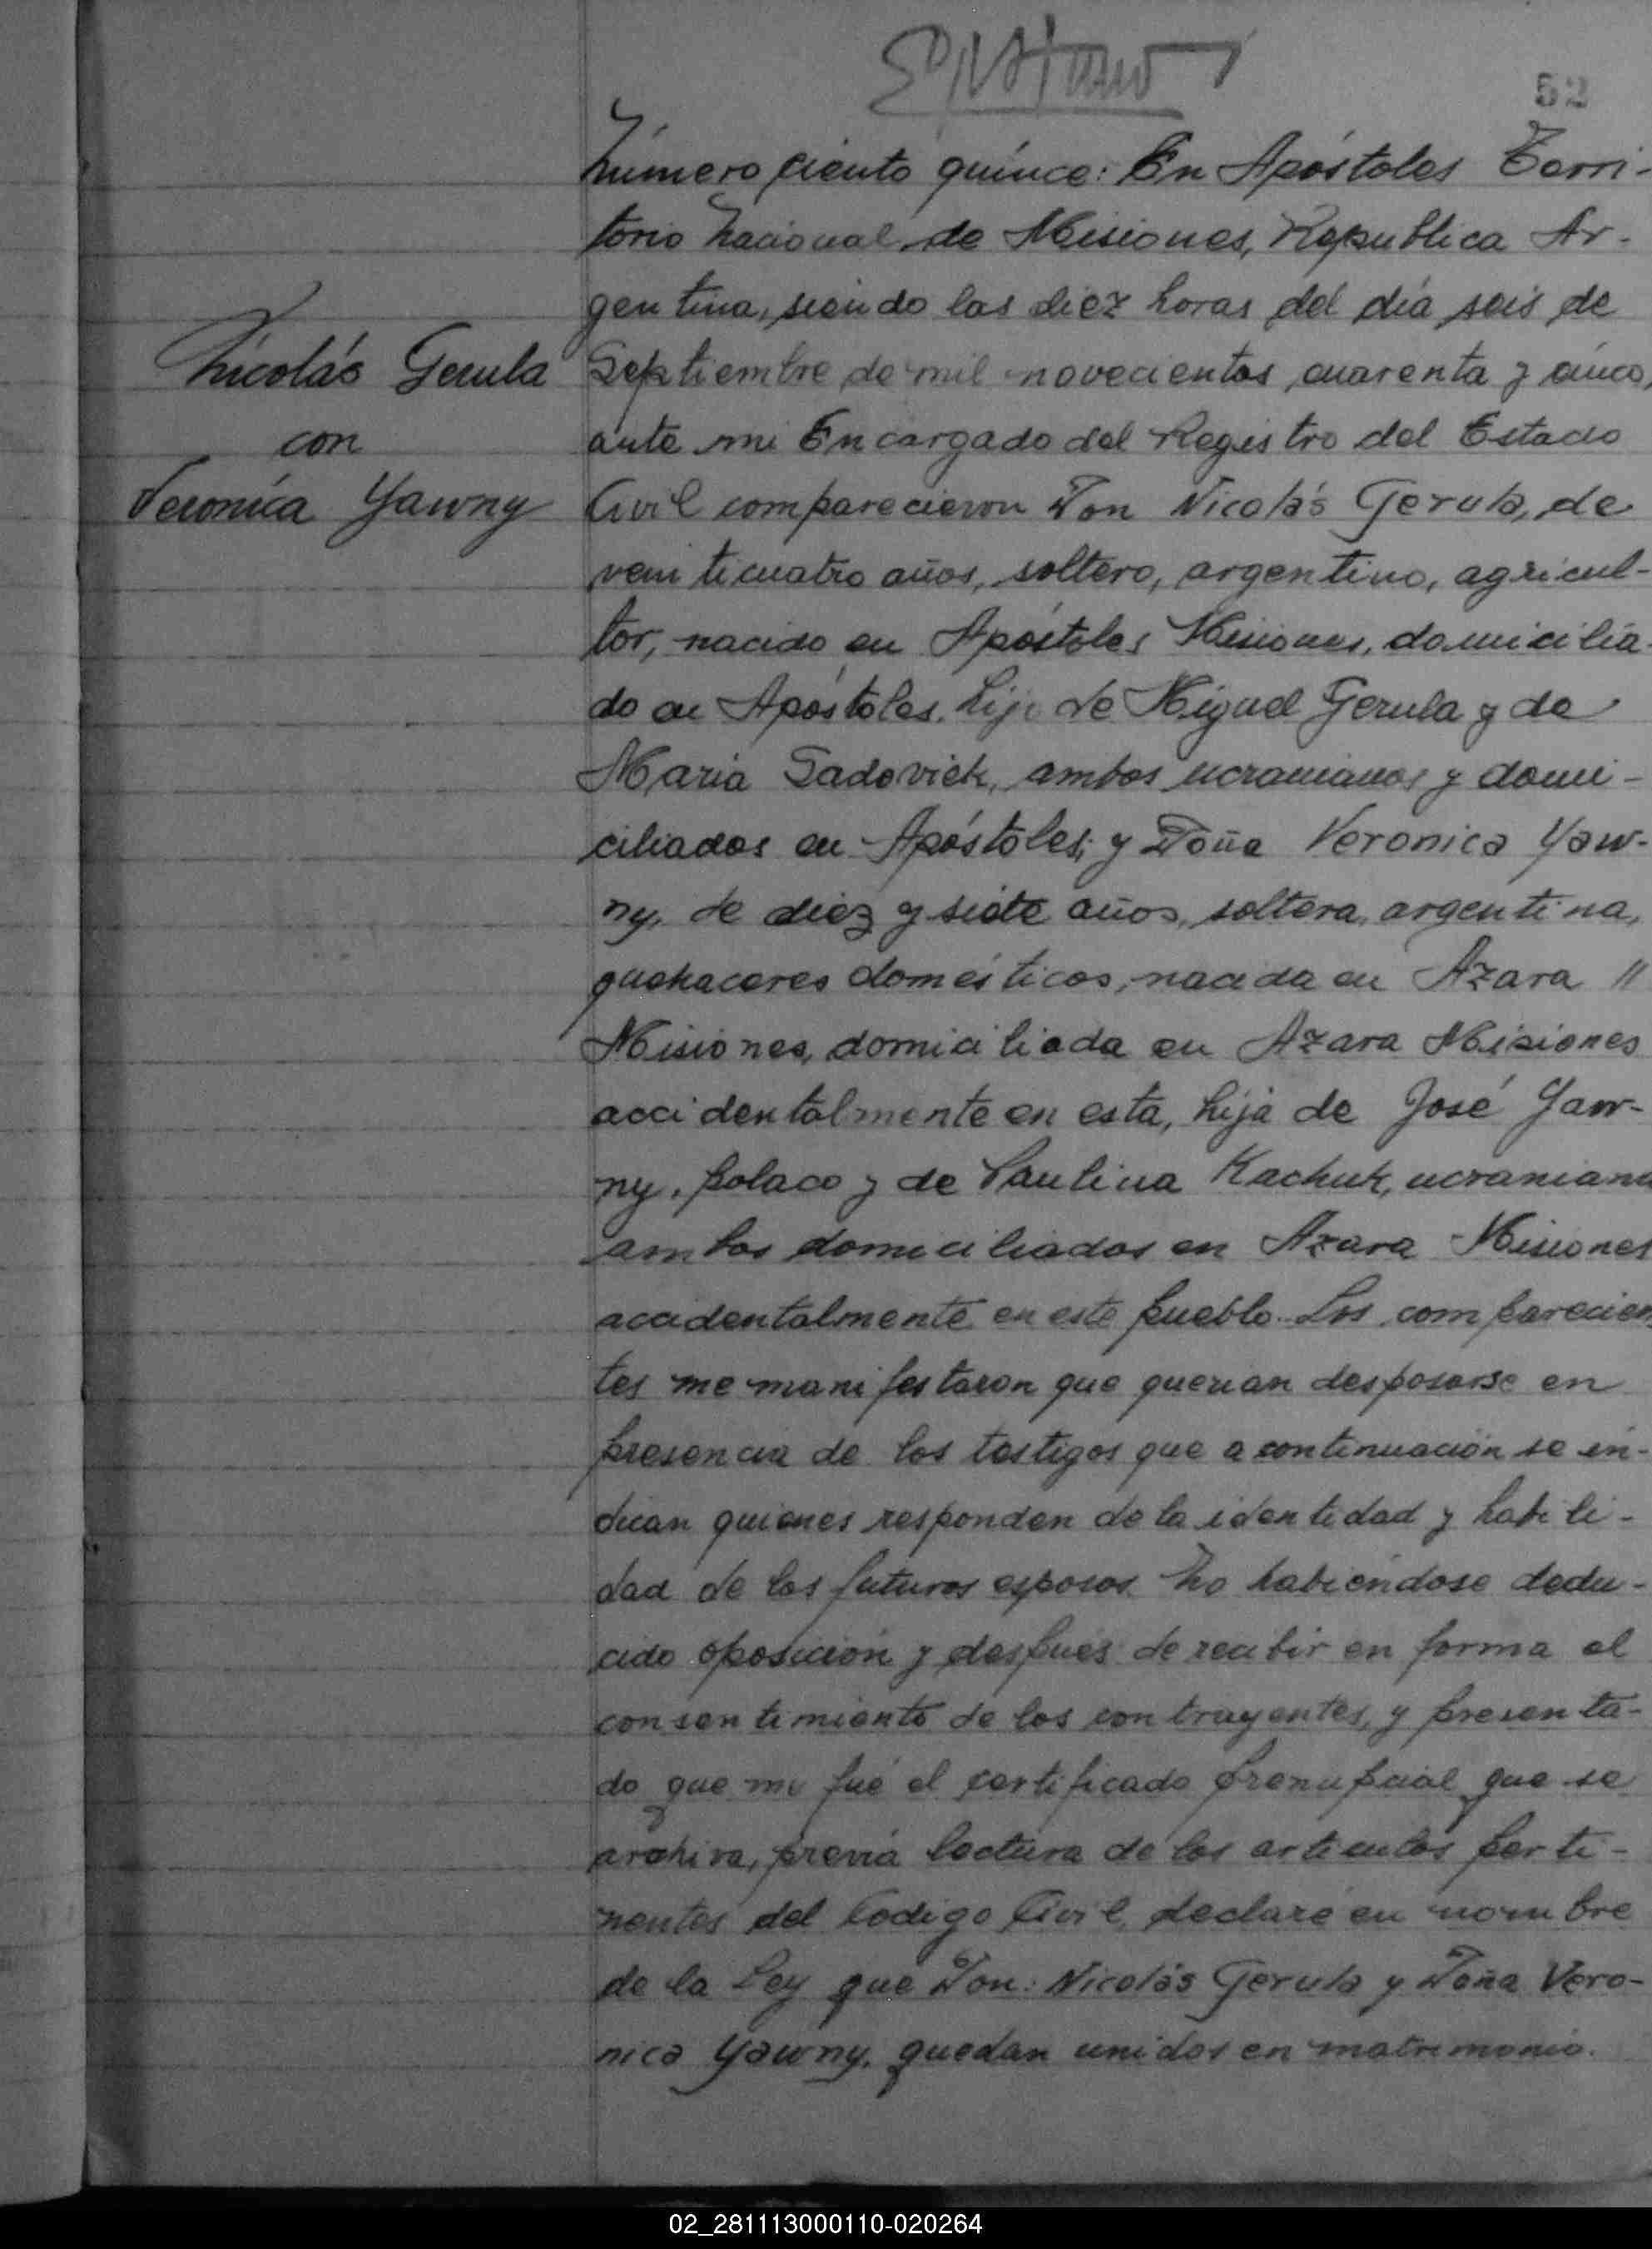 52
Número ciento quince: En Apóstoles Terri-
torio Nacional de Misiones, Republica Ar-
gentina, siendo las diez horas del día seis de
Nicolás Gerula
Septiembre de mil novecientos cuarenta y cinco,
con
ante mi Encargado del Registro del Estado
Veronica Yawny
Civil comparecieron Don Nicolás Gerula, de
veinticuatro años, soltero, argentino, agricul-
tor, nacido en Apóstoles Misiones, domicilia-
do en Apóstoles, hijo de Miguel Gerula y de
Maria Sadovick, ambos ucranianos y domi-
ciliados en Apóstoles; y Doña Veronica Yaw-
ny, de diez y siete años, soltera, argentina,
quehaceres domésticos, nacida en Azara "
Misiones, domiciliada en Azara Misiones
accidentalmente en esta, hija de José Yaw-
ny, polaco y de Paulina Kachuk, ucraniana
ambos domiciliados en Azara Misiones
accidentalmente en este pueblo. Los comparecien
tes me manifestaron que querian desposarse en
presencia de los testigos que a continuación se in-
dican quienes responden de la identidad y habili-
dad de los futuros esposos. No habiéndose dedu-
cido oposición y después de recibir en forma el
consentimiento de los contrayentes, y presenta-
do que me fué el certificado prenupcial que se
archiva, previa lectura de los articulos perti-
nentes del Codigo Civil, declaré en nombre
de la Ley que Don: Nicolás Gerula y Doña Vero-
nica Yawny, quedan unidos en matrimonio.
02_281113000110-020264